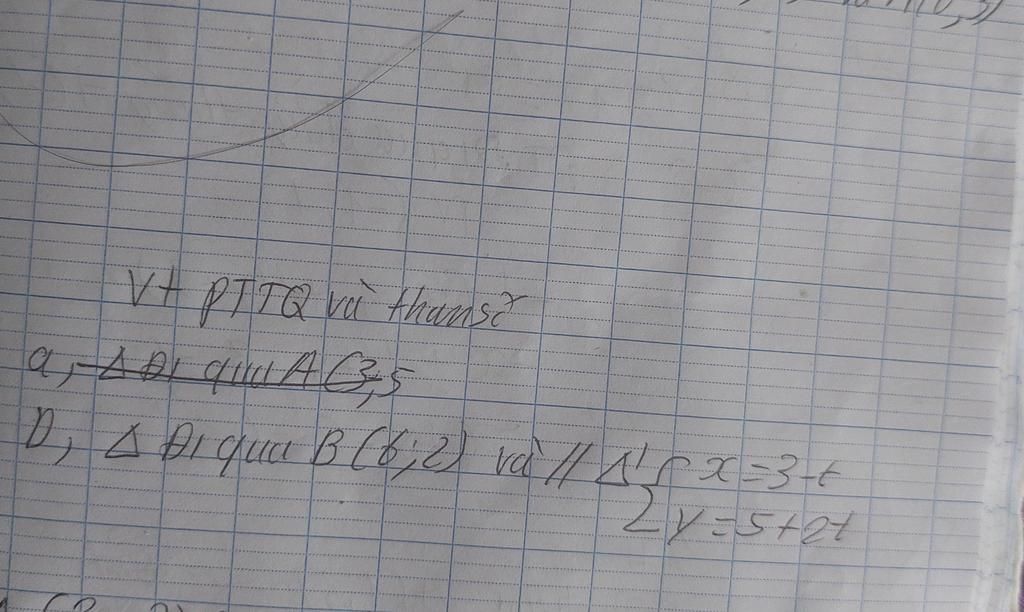 Vt PTTQ và thamsố
a, Δ Đi qua A(3,5
b, Δ Đi qua B(6;2) và // Δ' { x=3-t
y=5+2t